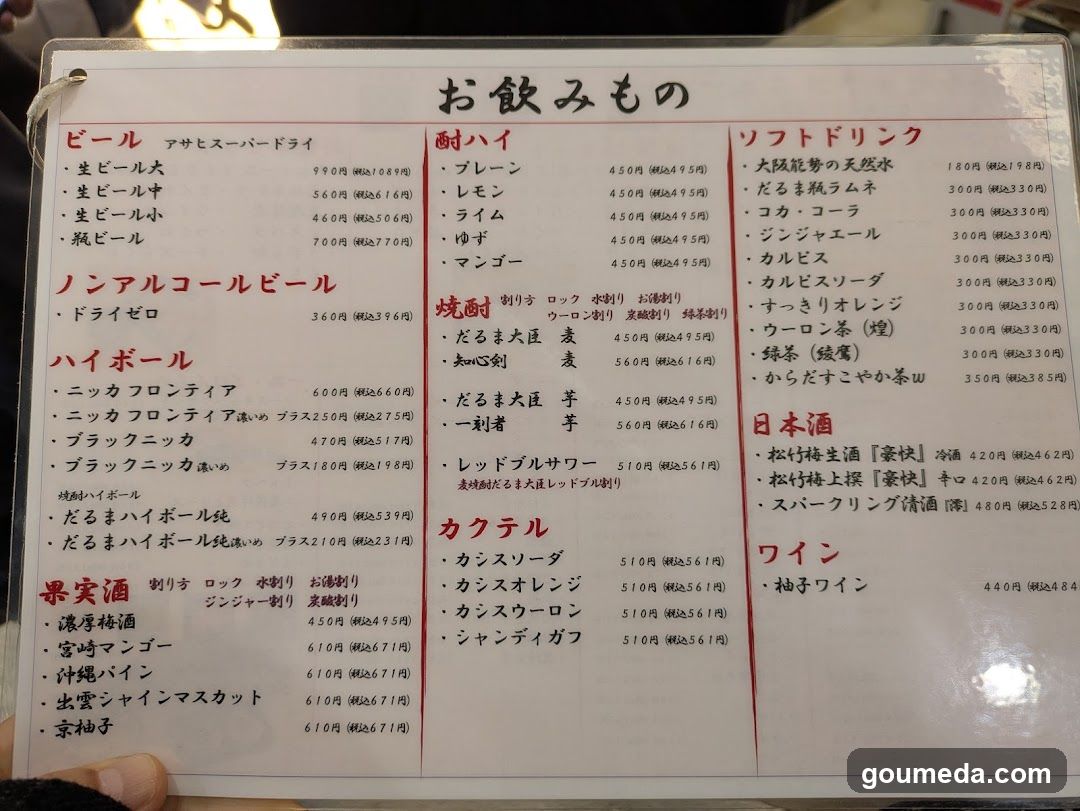 お飲みもの
ビール アサヒスーパードライ
・生ビール大 990円(税込1089円)
・生ビール中 560円(税込616円)
・生ビール小 460円(税込506円)
・瓶ビール 700円(税込770円)
ノンアルコールビール
・ドライゼロ 360円(税込396円)
ハイボール
・ニッカ フロンティア 600円(税込660円)
・ニッカ フロンティア濃いめ プラス250円(税込275円)
・ブラックニッカ 470円(税込517円)
・ブラックニッカ濃いめ プラス180円(税込198円)
焼酎ハイボール
・だるまハイボール純 490円(税込539円)
・だるまハイボール純濃いめ プラス210円(税込231円)
果実酒 割り方 ロック 水割り お湯割り
ジンジャー割り 炭酸割り
・濃厚梅酒 450円(税込495円)
・宮崎マンゴー 610円(税込671円)
・沖縄パイン 610円(税込671円)
・出雲シャインマスカット 610円(税込671円)
・京柚子 610円(税込671円)
酎ハイ
・プレーン 450円(税込495円)
・レモン 450円(税込495円)
・ライム 450円(税込495円)
・ゆず 450円(税込495円)
・マンゴー 450円(税込495円)
焼酎 割り方 ロック 水割り お湯割り
ウーロン割り 炭酸割り 緑茶割り
・だるま大臣 麦 450円(税込495円)
・知心剣 麦 560円(税込616円)
・だるま大臣 芋 450円(税込495円)
・一刻者 芋 560円(税込616円)
・レッドブルサワー 510円(税込561円)
麦焼酎だるま大臣レッドブル割り
カクテル
・カシスソーダ 510円(税込561円)
・カシスオレンジ 510円(税込561円)
・カシスウーロン 510円(税込561円)
・シャンディガフ 510円(税込561円)
ソフトドリンク
・大阪能勢の天然水 180円(税込198円)
・だるま瓶ラムネ 300円(税込330円)
・コカ・コーラ 300円(税込330円)
・ジンジャエール 300円(税込330円)
・カルピス 300円(税込330円)
・カルピスソーダ 300円(税込330円)
・すっきりオレンジ 300円(税込330円)
・ウーロン茶(煌) 300円(税込330円)
・緑茶(綾鷹) 300円(税込330円)
・からだすこやか茶W 350円(税込385円)
日本酒
・松竹梅生酒『豪快』冷酒 420円(税込462円)
・松竹梅上撰『豪快』辛口 420円(税込462円)
・スパークリング清酒『澪』 480円(税込528円)
ワイン
・柚子ワイン 440円(税込484
goumeda.com